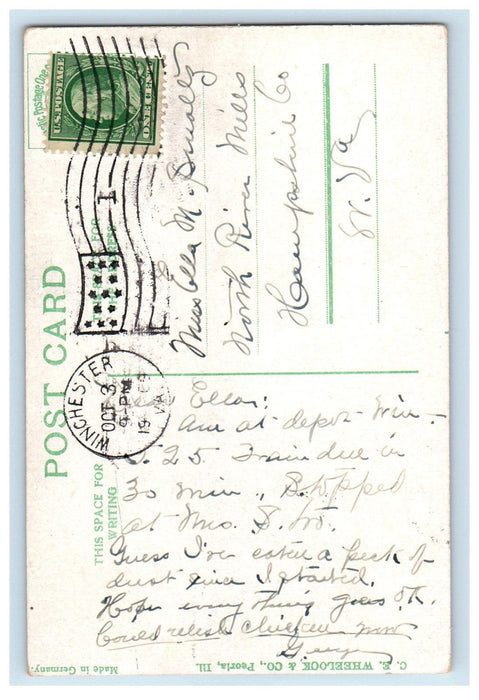 POST CARD
THIS SPACE FOR
WRITING
U.S. POSTAGE
ONE CENT
1
WINCHESTER
OCT 3
9-PM
19
VA.
Miss Ella
North River Mills
Hampshire Co
W. Va
Ella:
Am at depot Win-
25 Train due in
30 min.,
at Mrs. S.
Guess I've eaten a peck of
dust since I started.
Hope everything goes O.K.
Could relish chicken now
C. E. WHEELOCK & CO., Peoria, Ill.
Made in Germany.